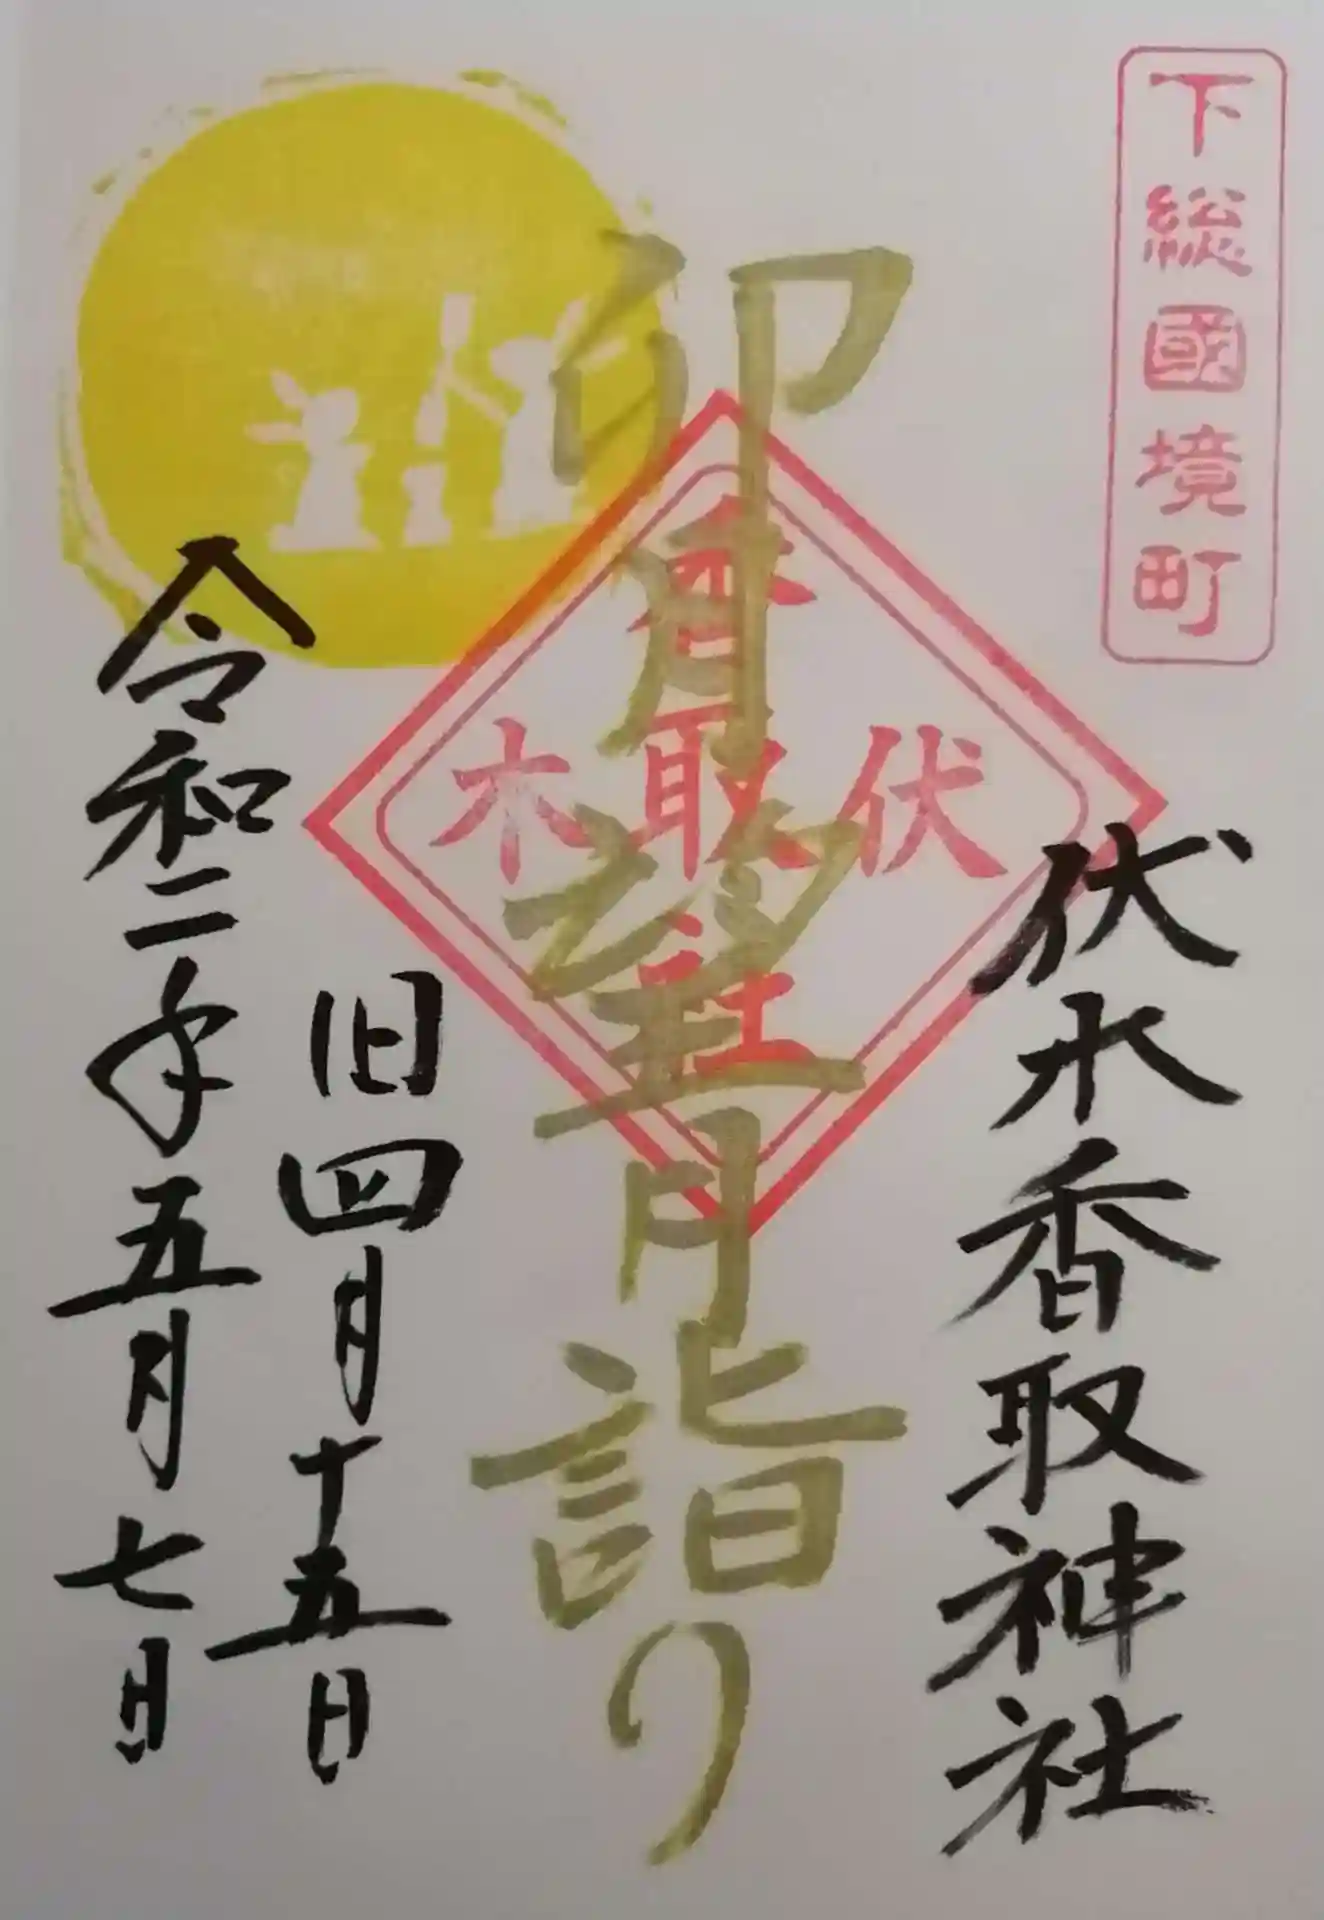 下総國境町
伏木香取神社
伏木
香取社
卯月望月詣り
旧四月十五日
令和二年五月七日